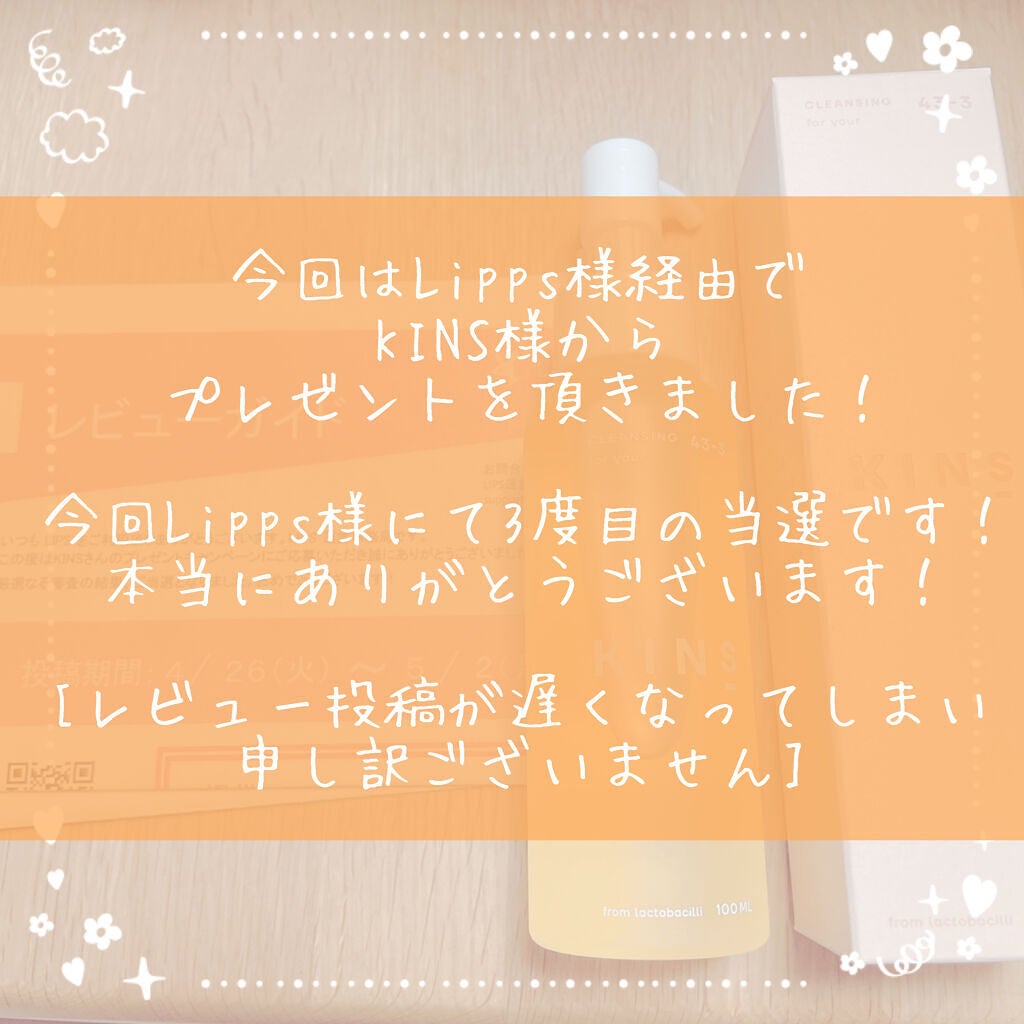 CLEANSING 43-3
for your
今回はLipps様経由で
KINS様から
プレゼントを頂きました！
レビューガイド
CLEANSING 43-3
for your
KINS
今回Lipps様にて3度目の当選です！
本当にありがとうございます！
KINS
投稿期間:4/26(火)〜5/2(
[レビュー投稿が遅くなってしまい
申し訳ございません]
from lactobacilli 100ML
from lactobacilli